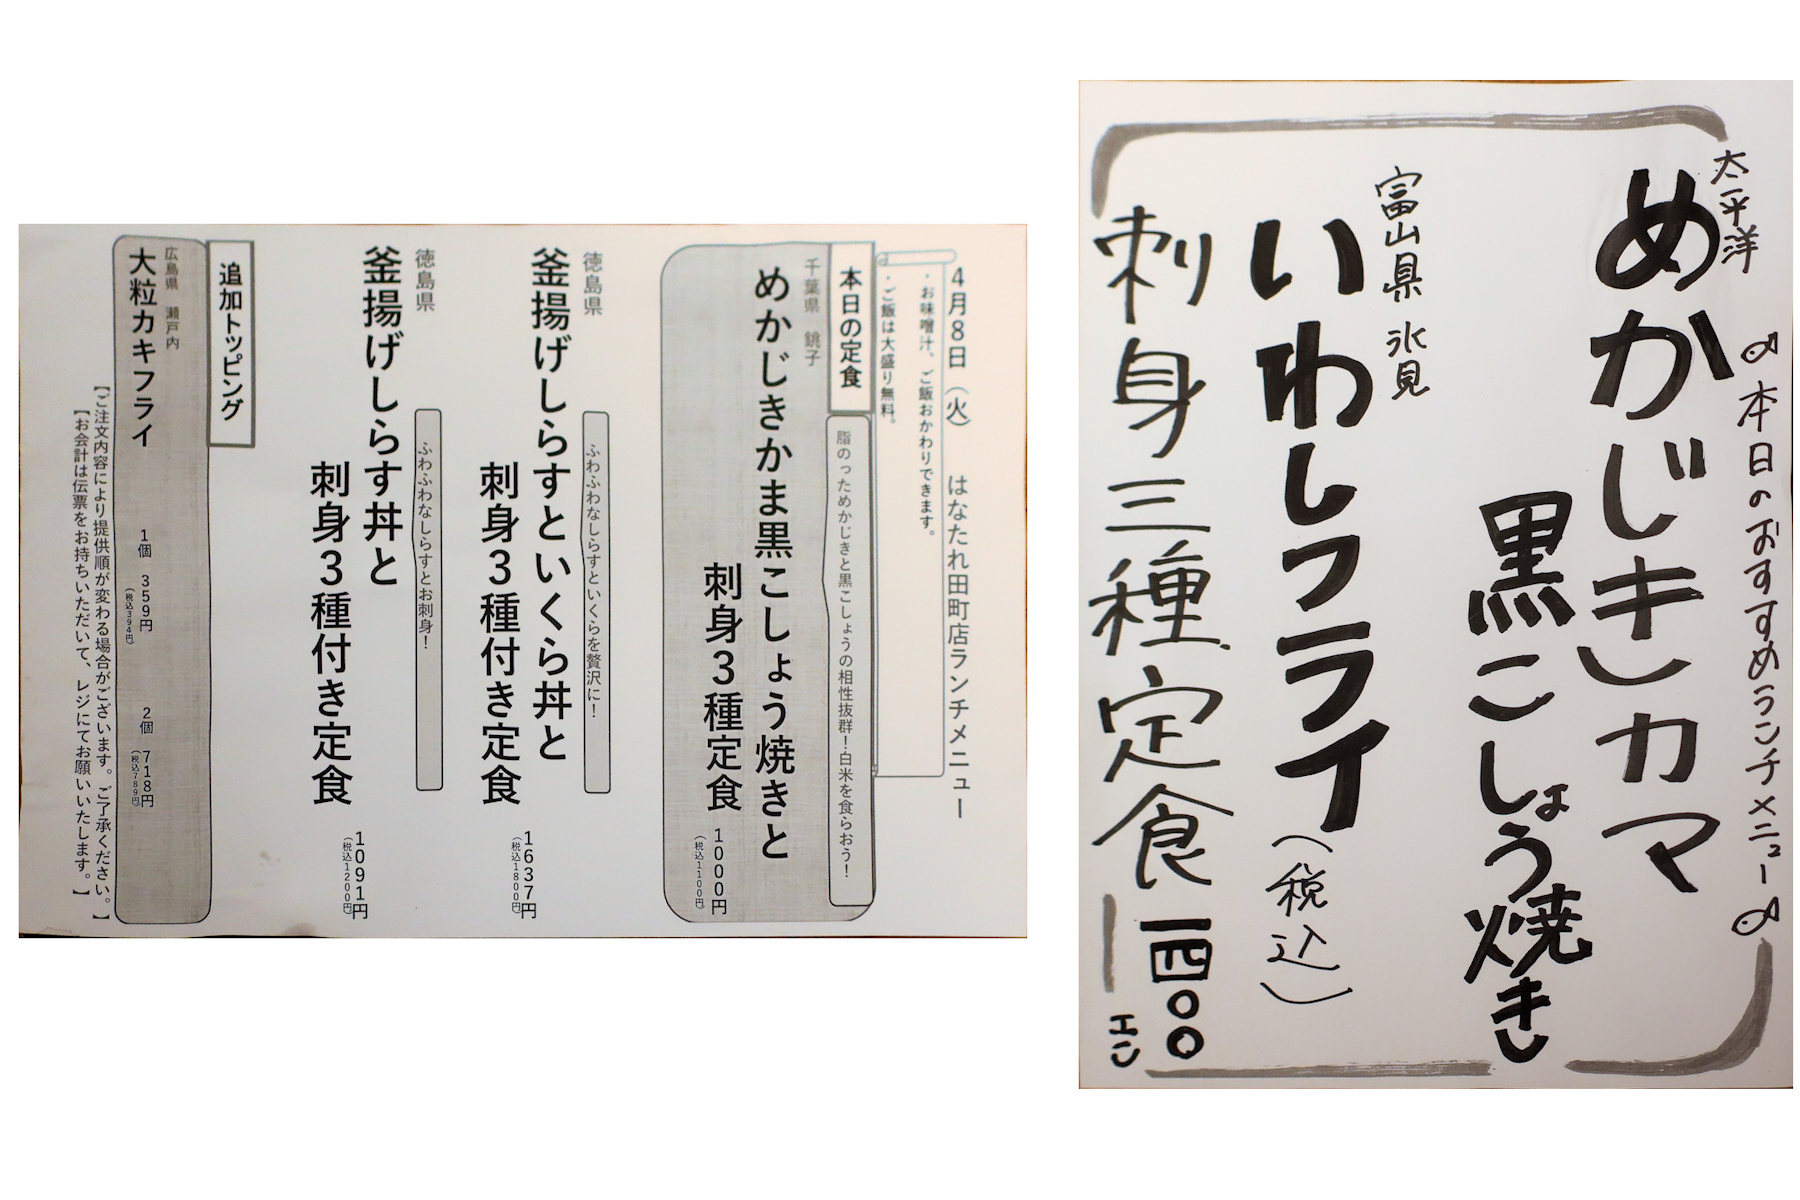 4月8日（火）　はなたれ田町店ランチメニュー
・お味噌汁、ご飯おかわりできます。
・ご飯は大盛り無料。
本日の定食
脂のっためかじきと黒こしょうの相性抜群！白米を食らおう！
千葉県　銚子
めかじきかま黒こしょう焼きと
刺身３種定食
1000円
（税込1100円）
徳島県
ふわふわなしらすといくらを贅沢に！
釜揚げしらすといくら丼と
刺身３種付き定食
1637円
（税込1800円）
徳島県
ふわふわなしらすとお刺身！
釜揚げしらす丼と
刺身３種付き定食
1091円
（税込1200円）
追加トッピング
広島県　瀬戸内
大粒カキフライ
1個　359円
（税込394円）
2個　718円
（税込789円）
【ご注文内容により提供順が変わる場合がございます。ご了承ください。】
【お会計は伝票をお持ちいただいて、レジにてお願いいたします。】
本日のおすすめランチメニュー
太平洋
めかじきカマ
黒こしょう焼き
富山県 氷見
いわしフライ（税込）
刺身三種定食 一四〇〇
エン